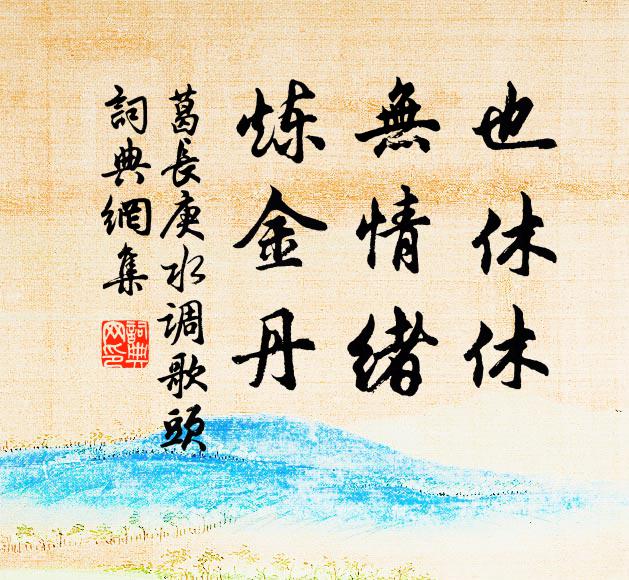 也休休
無情緒
炼金丹
葛長庚水调歌頭
詞典網集
詞典
网印